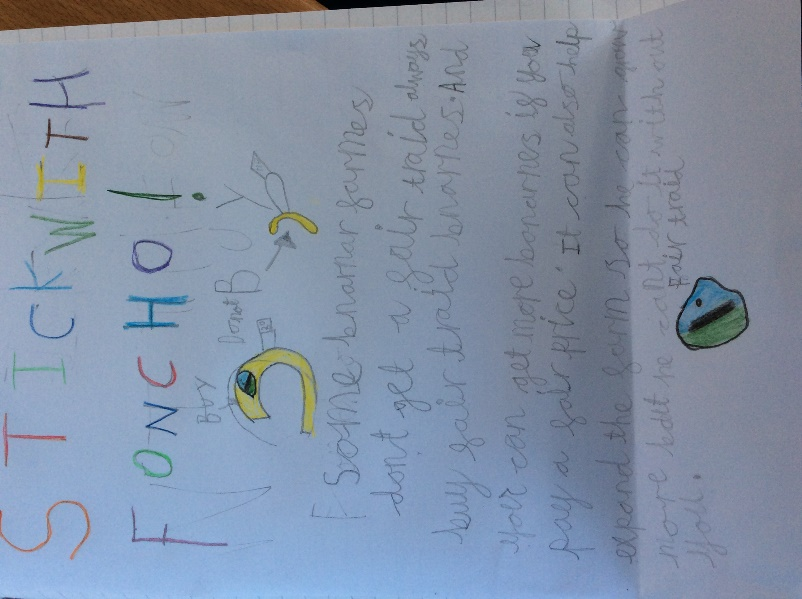 STICK WITH
FONCHO!
Buy
Do not BUY
Some bnarnar farmes
don't get a fair traid always
buy fair traid bnarnes. And
you can get more bonarnes if you
pay a fair price. It can also help
expand the farm so he can grow
more butt he cant do it with out
you.
Fair traid